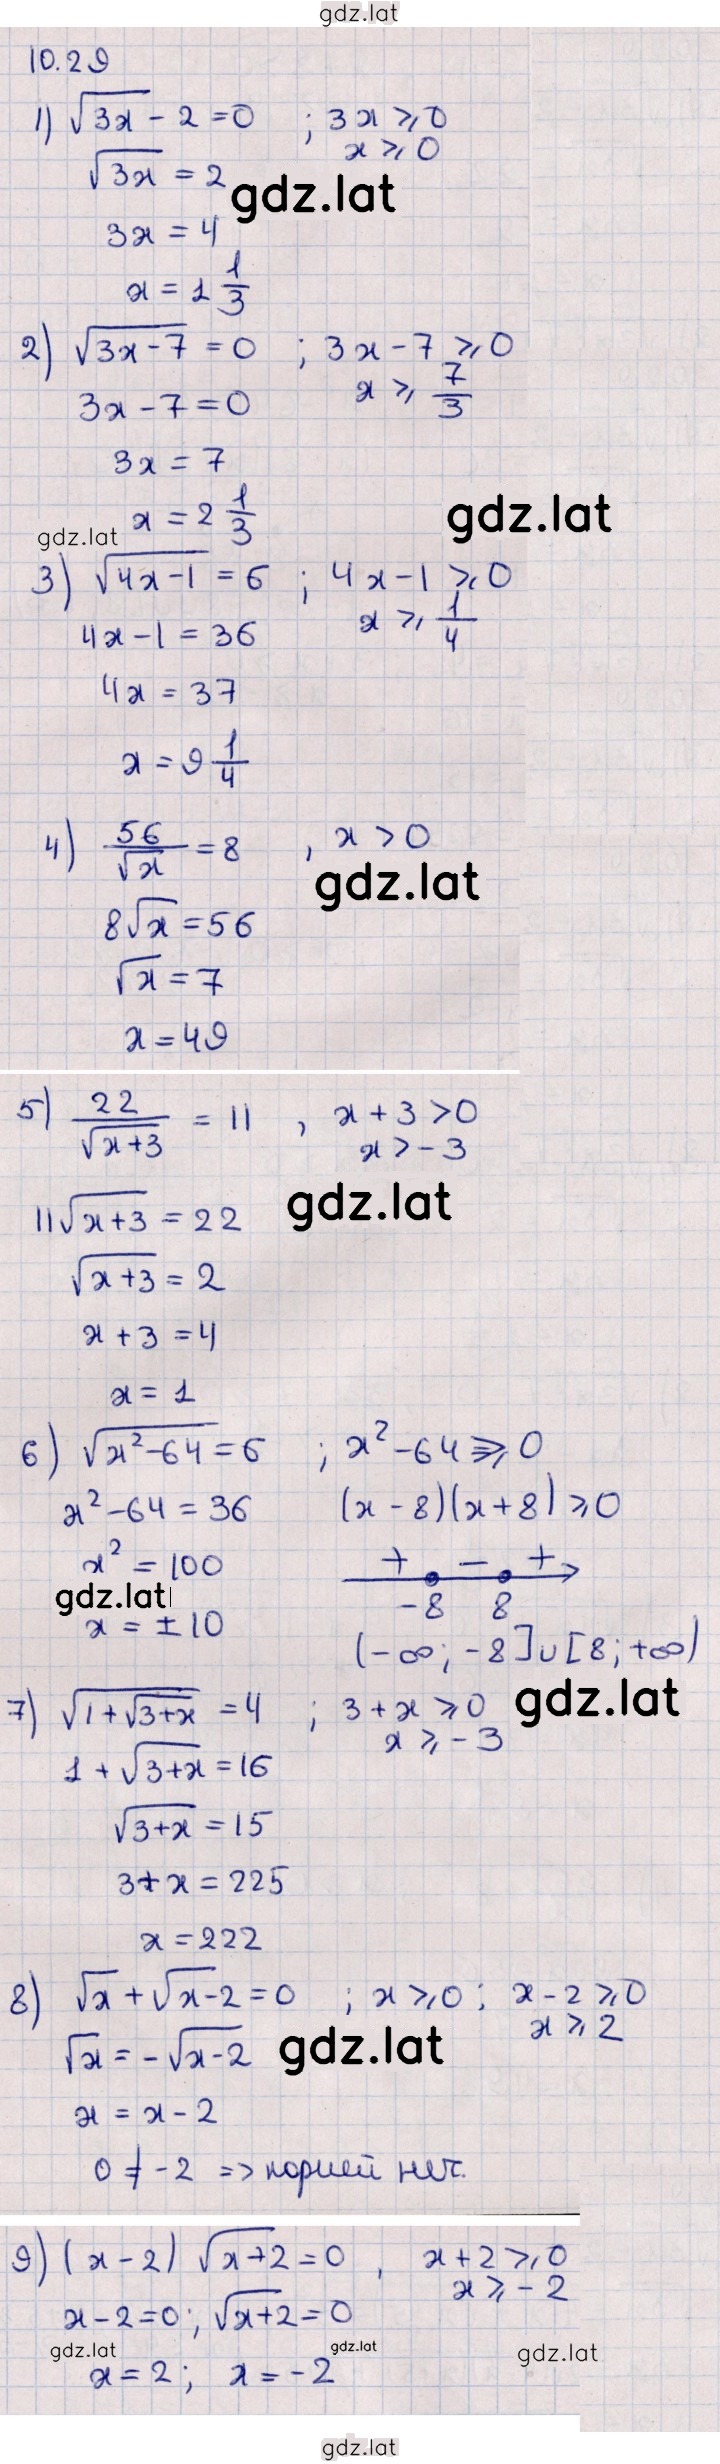 gdz.lat
10.29
1) √3x - 2 = 0 ; 3x ⩾ 0
x ⩾ 0
√3x = 2
gdz.lat
3x = 4
x = 1 1/3
2) √3x-7 = 0 ; 3x-7 ⩾ 0
x ⩾ 7/3
3x-7 = 0
3x = 7
x = 2 1/3
gdz.lat
gdz.lat
3) √4x-1 = 6 ; 4x-1 ⩾ 0
x ⩾ 1/4
4x-1 = 36
4x = 37
x = 9 1/4
4) 56/√x = 8 , x > 0
gdz.lat
8√x = 56
√x = 7
x = 49
5) 22/√x+3 = 11 , x+3 > 0
x > -3
gdz.lat
11√x+3 = 22
√x+3 = 2
x+3 = 4
x = 1
6) √x²-64 = 6 ; x²-64 ⩾ 0
x²-64 = 36 (x-8)(x+8) ⩾ 0
x² = 100 + - +
gdz.lat
-8 8
x = ±10
(-∞; -8]∪[8; +∞)
7) √1+√3+x = 4 ; 3+x ⩾ 0
gdz.lat
x ⩾ -3
1+√3+x = 16
√3+x = 15
3+x = 225
x = 222
8) √x + √x-2 = 0 ; x ⩾ 0 ; x-2 ⩾ 0
x ⩾ 2
√x = -√x-2
gdz.lat
x = x-2
0 ≠ -2 => корней нет.
9) (x-2) √x+2 = 0 , x+2 ⩾ 0
x ⩾ -2
x-2=0 ; √x+2 = 0
gdz.lat
gdz.lat
gdz.lat
x = 2 ; x = -2
gdz.lat